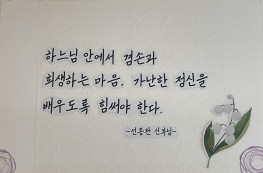 하느님 안에서 겸손과
희생하는 마음, 가난한 정신을
배우도록 힘써야 한다.
-선종완 신부님-